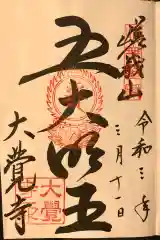 嵯峨山
令和三年
三月十一日
五大明王
大覺寺
大覺